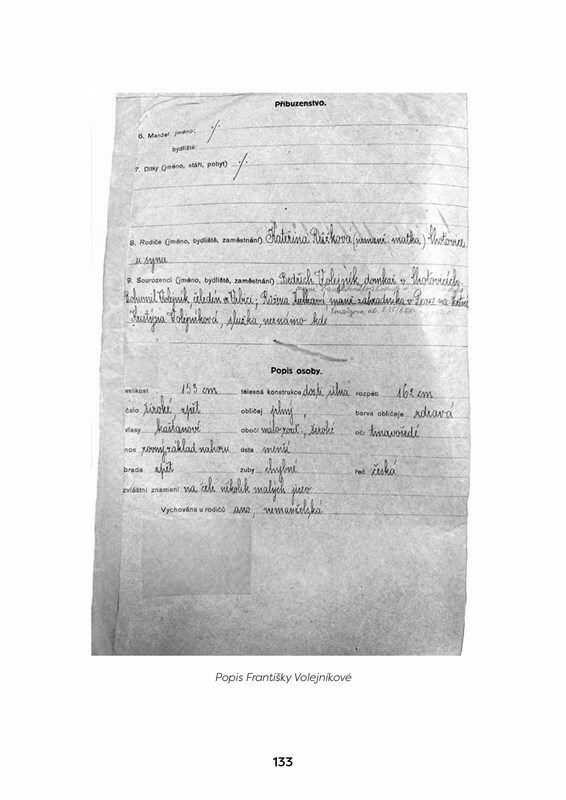 Příbuzenstvo.
6. Manžel jméno: ./.
bydliště:
7. Dítky (jméno, stáří, pobyt) ./.
8. Rodiče (jméno, bydliště, zaměstnání) Kateřina (nemanž. matka) Lhotovice
u syna
9. Sourozenci (jméno, bydliště, zaměstnání) Bedřich Volejník, domkář v Lhotovicích,
Bohumil Volejník, čeledín v Růžena zahradníka v Praze na
Kristýna Volejníková, služka, neznámo kde
Popis osoby.
velikost 153 cm tělesná konstrukce dosti silná rozpětí 162 cm
čelo široké zpět obličej plný barva obličeje zdravá
vlasy kaštanové obočí široké oči tmavošedé
nos rovný základ nahoru ústa menší
brada zpět zuby chybné řeč česká
zvláštní znamení na čele několik malých jizev
Vychována u rodičů ano, nemanželská
Popis Františky Volejníkové
133